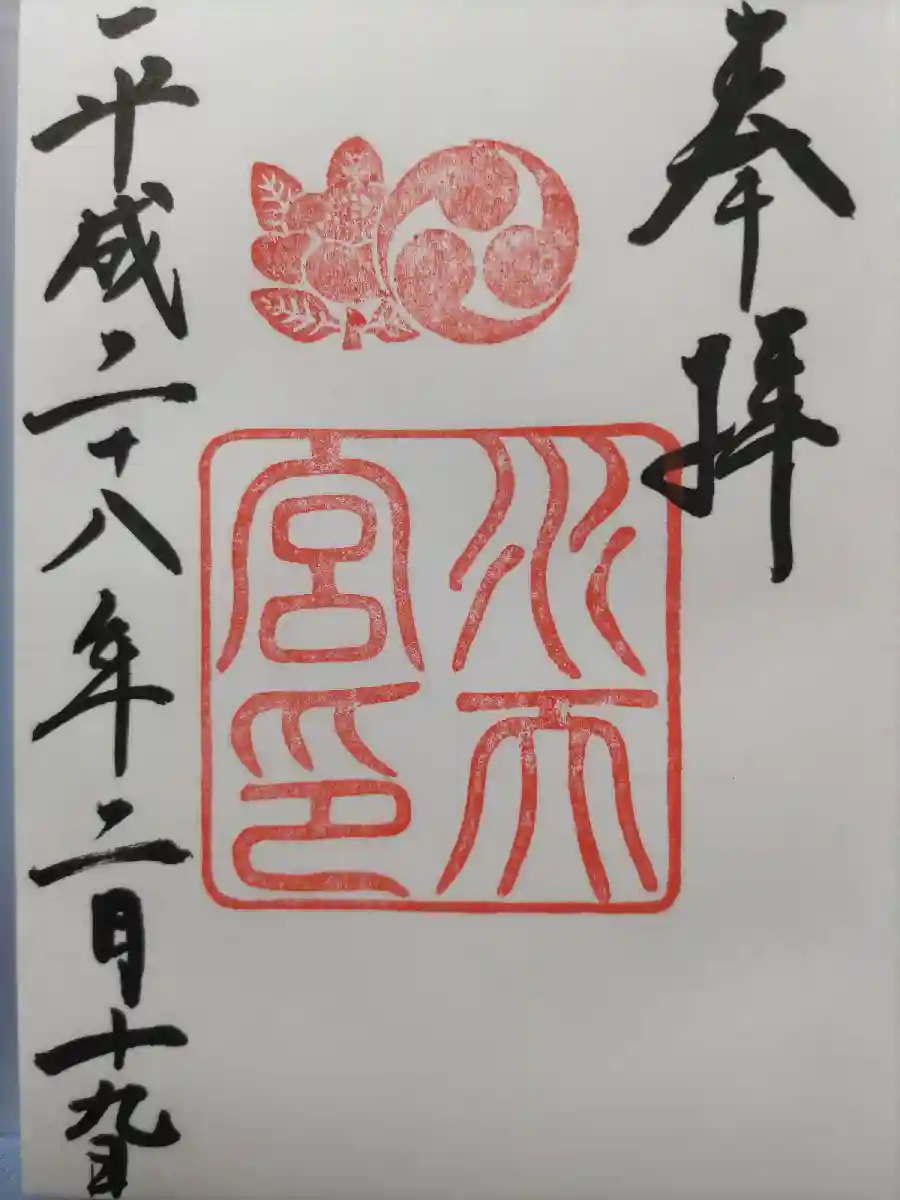 奉拝
水天
宮印
平成二十八年二月十九日